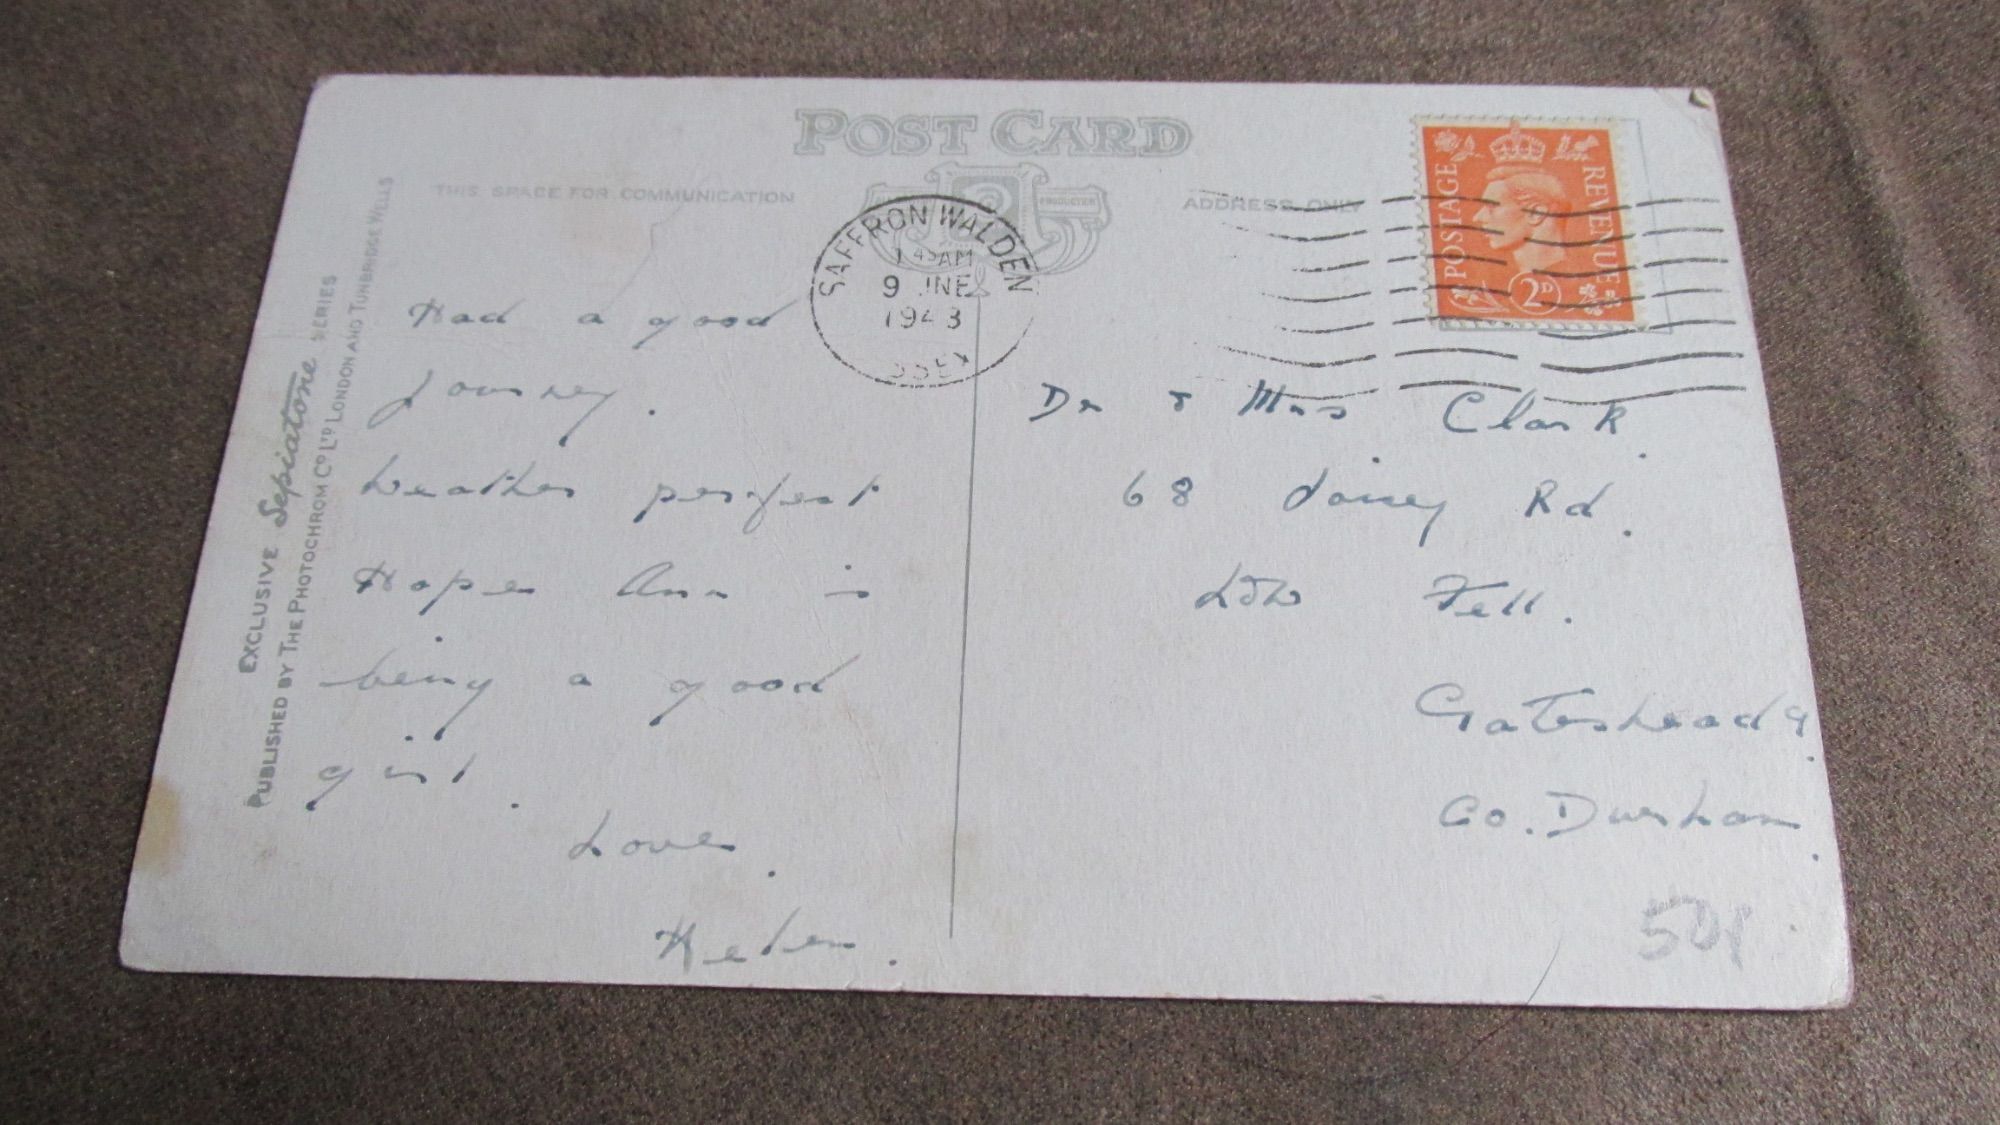 POST CARD
THIS SPACE FOR COMMUNICATION
ADDRESS ONLY
EXCLUSIVE Sepiatone SERIES
PUBLISHED BY THE PHOTOCHROM CO LTD LONDON AND TUNBRIDGE WELLS
SAFFRON WALDEN
45 AM
9 JNE
1943
SSEX
POSTAGE REVENUE
2D
Had a good
journey.
Weather perfect
Hope Ann is
being a good
girl.
Love.
Helen.
Dr & Mrs Clark.
68 Rd.
Low Fell.
Gateshead 9.
Co. Durham.